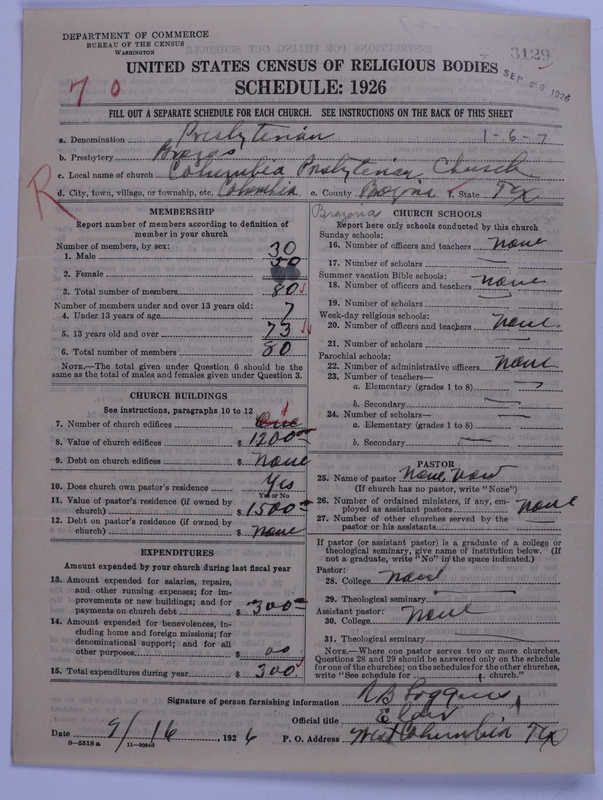 DEPARTMENT OF COMMERCE
BUREAU OF THE CENSUS
WASHINGTON
3129
SEP 20 1926
UNITED STATES CENSUS OF RELIGIOUS BODIES
SCHEDULE: 1926
7 0
FILL OUT A SEPARATE SCHEDULE FOR EACH CHURCH. SEE INSTRUCTIONS ON THE BACK OF THIS SHEET
a. Denomination Presbyterian 1-6-7
b. Presbytery Brazos
c. Local name of church Columbia Presbyterian Church
d. City, town, village, or township, etc. Columbia e. County Brazoria f. State Tex
R
MEMBERSHIP
Report number of members according to definition of
member in your church
Number of members, by sex:
1. Male 30
2. Female 50
3. Total number of members 80
Number of members under and over 13 years old:
4. Under 13 years of age 7
5. 13 years old and over 73
6. Total number of members 80
NOTE.—The total given under Question 6 should be
same as the total of males and females given under Question 3.
CHURCH BUILDINGS
See instructions, paragraphs 10 to 12
7. Number of church edifices One 1
8. Value of church edifices $ 1200
9. Debt on church edifices $ None
10. Does church own pastor's residence Yes
Yes or No
11. Value of pastor's residence (if owned by
church) $ 1500
12. Debt on pastor's residence (if owned by
church) $ None
EXPENDITURES
Amount expended by your church during last fiscal year
13. Amount expended for salaries, repairs,
and other running expenses; for im-
provements or new buildings; and for
payments on church debt $ 300
14. Amount expended for benevolences, in-
cluding home and foreign missions; for
denominational support; and for all
other purposes $ 00
15. Total expenditures during year $ 300
Brazoria
CHURCH SCHOOLS
Report here only schools conducted by this church
Sunday schools:
16. Number of officers and teachers None
17. Number of scholars —
Summer vacation Bible schools:
18. Number of officers and teachers None
19. Number of scholars —
Week-day religious schools:
20. Number of officers and teachers None
21. Number of scholars —
Parochial schools:
22. Number of administrative officers None
23. Number of teachers—
a. Elementary (grades 1 to 8) —
b. Secondary —
24. Number of scholars—
a. Elementary (grades 1 to 8) —
b. Secondary —
PASTOR
25. Name of pastor None now
(If church has no pastor, write "None")
26. Number of ordained ministers, if any, em-
ployed as assistant pastors None
27. Number of other churches served by the
pastor or his assistants —
If pastor (or assistant pastor) is a graduate of a college or
theological seminary, give name of institution below. (If
not a graduate, write "No" in the space indicated.)
Pastor:
28. College None
29. Theological seminary —
Assistant pastor:
30. College None
31. Theological seminary —
NOTE.—Where one pastor serves two or more churches,
Questions 28 and 29 should be answered only on the schedule
for one of the churches; on the schedules for the other churches,
write "See schedule for church."
Signature of person furnishing information
Official title
Date 9/16, 1926 P. O. Address West Columbia Tex
8—5518 a 11—20544